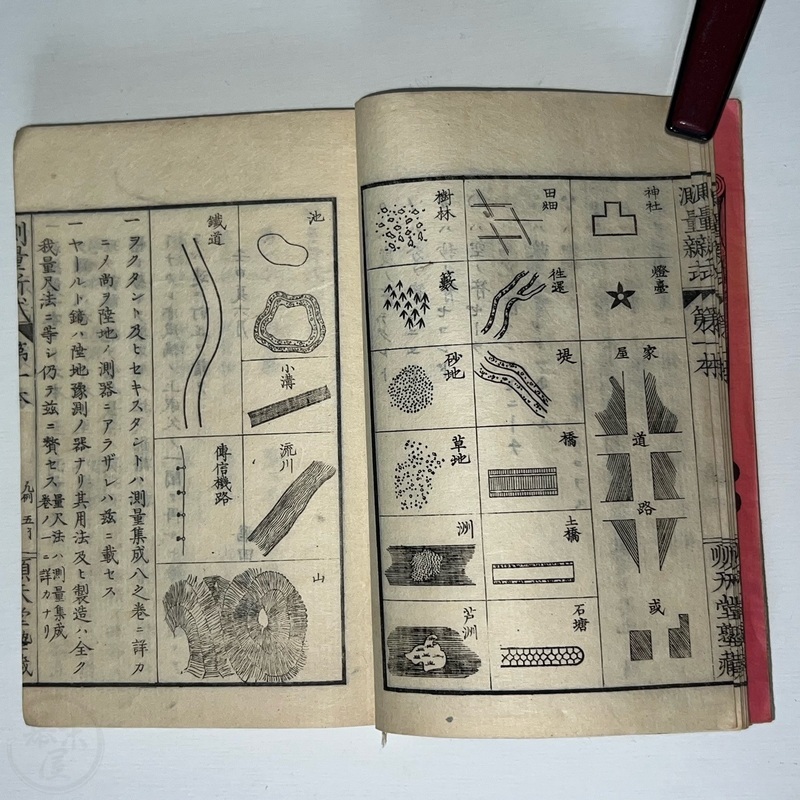 測量新式 第一本
順天堂塾藏
神社
燈臺
家屋
道路
或
田畑
徃還
堤
橋
土橋
石塘
樹林
藪
砂地
草地
洲
芦洲
池
小溝
流川
山
鐵道
傳信機路
一ヲクタント及ヒセキスタントハ測量集成八之巻ニ詳カ
ニノ尚ヲ陸地ノ測器ニアラザレハ茲ニ載セス
一ヤールト鏡ハ陸地豫測ノ器ナリ其用法及ヒ製造ハ全ク
我量尺法ニ等シ仍テ茲ニ贅セス
量尺法ハ測量集成
巻ノ一ニ詳カナリ
第一本